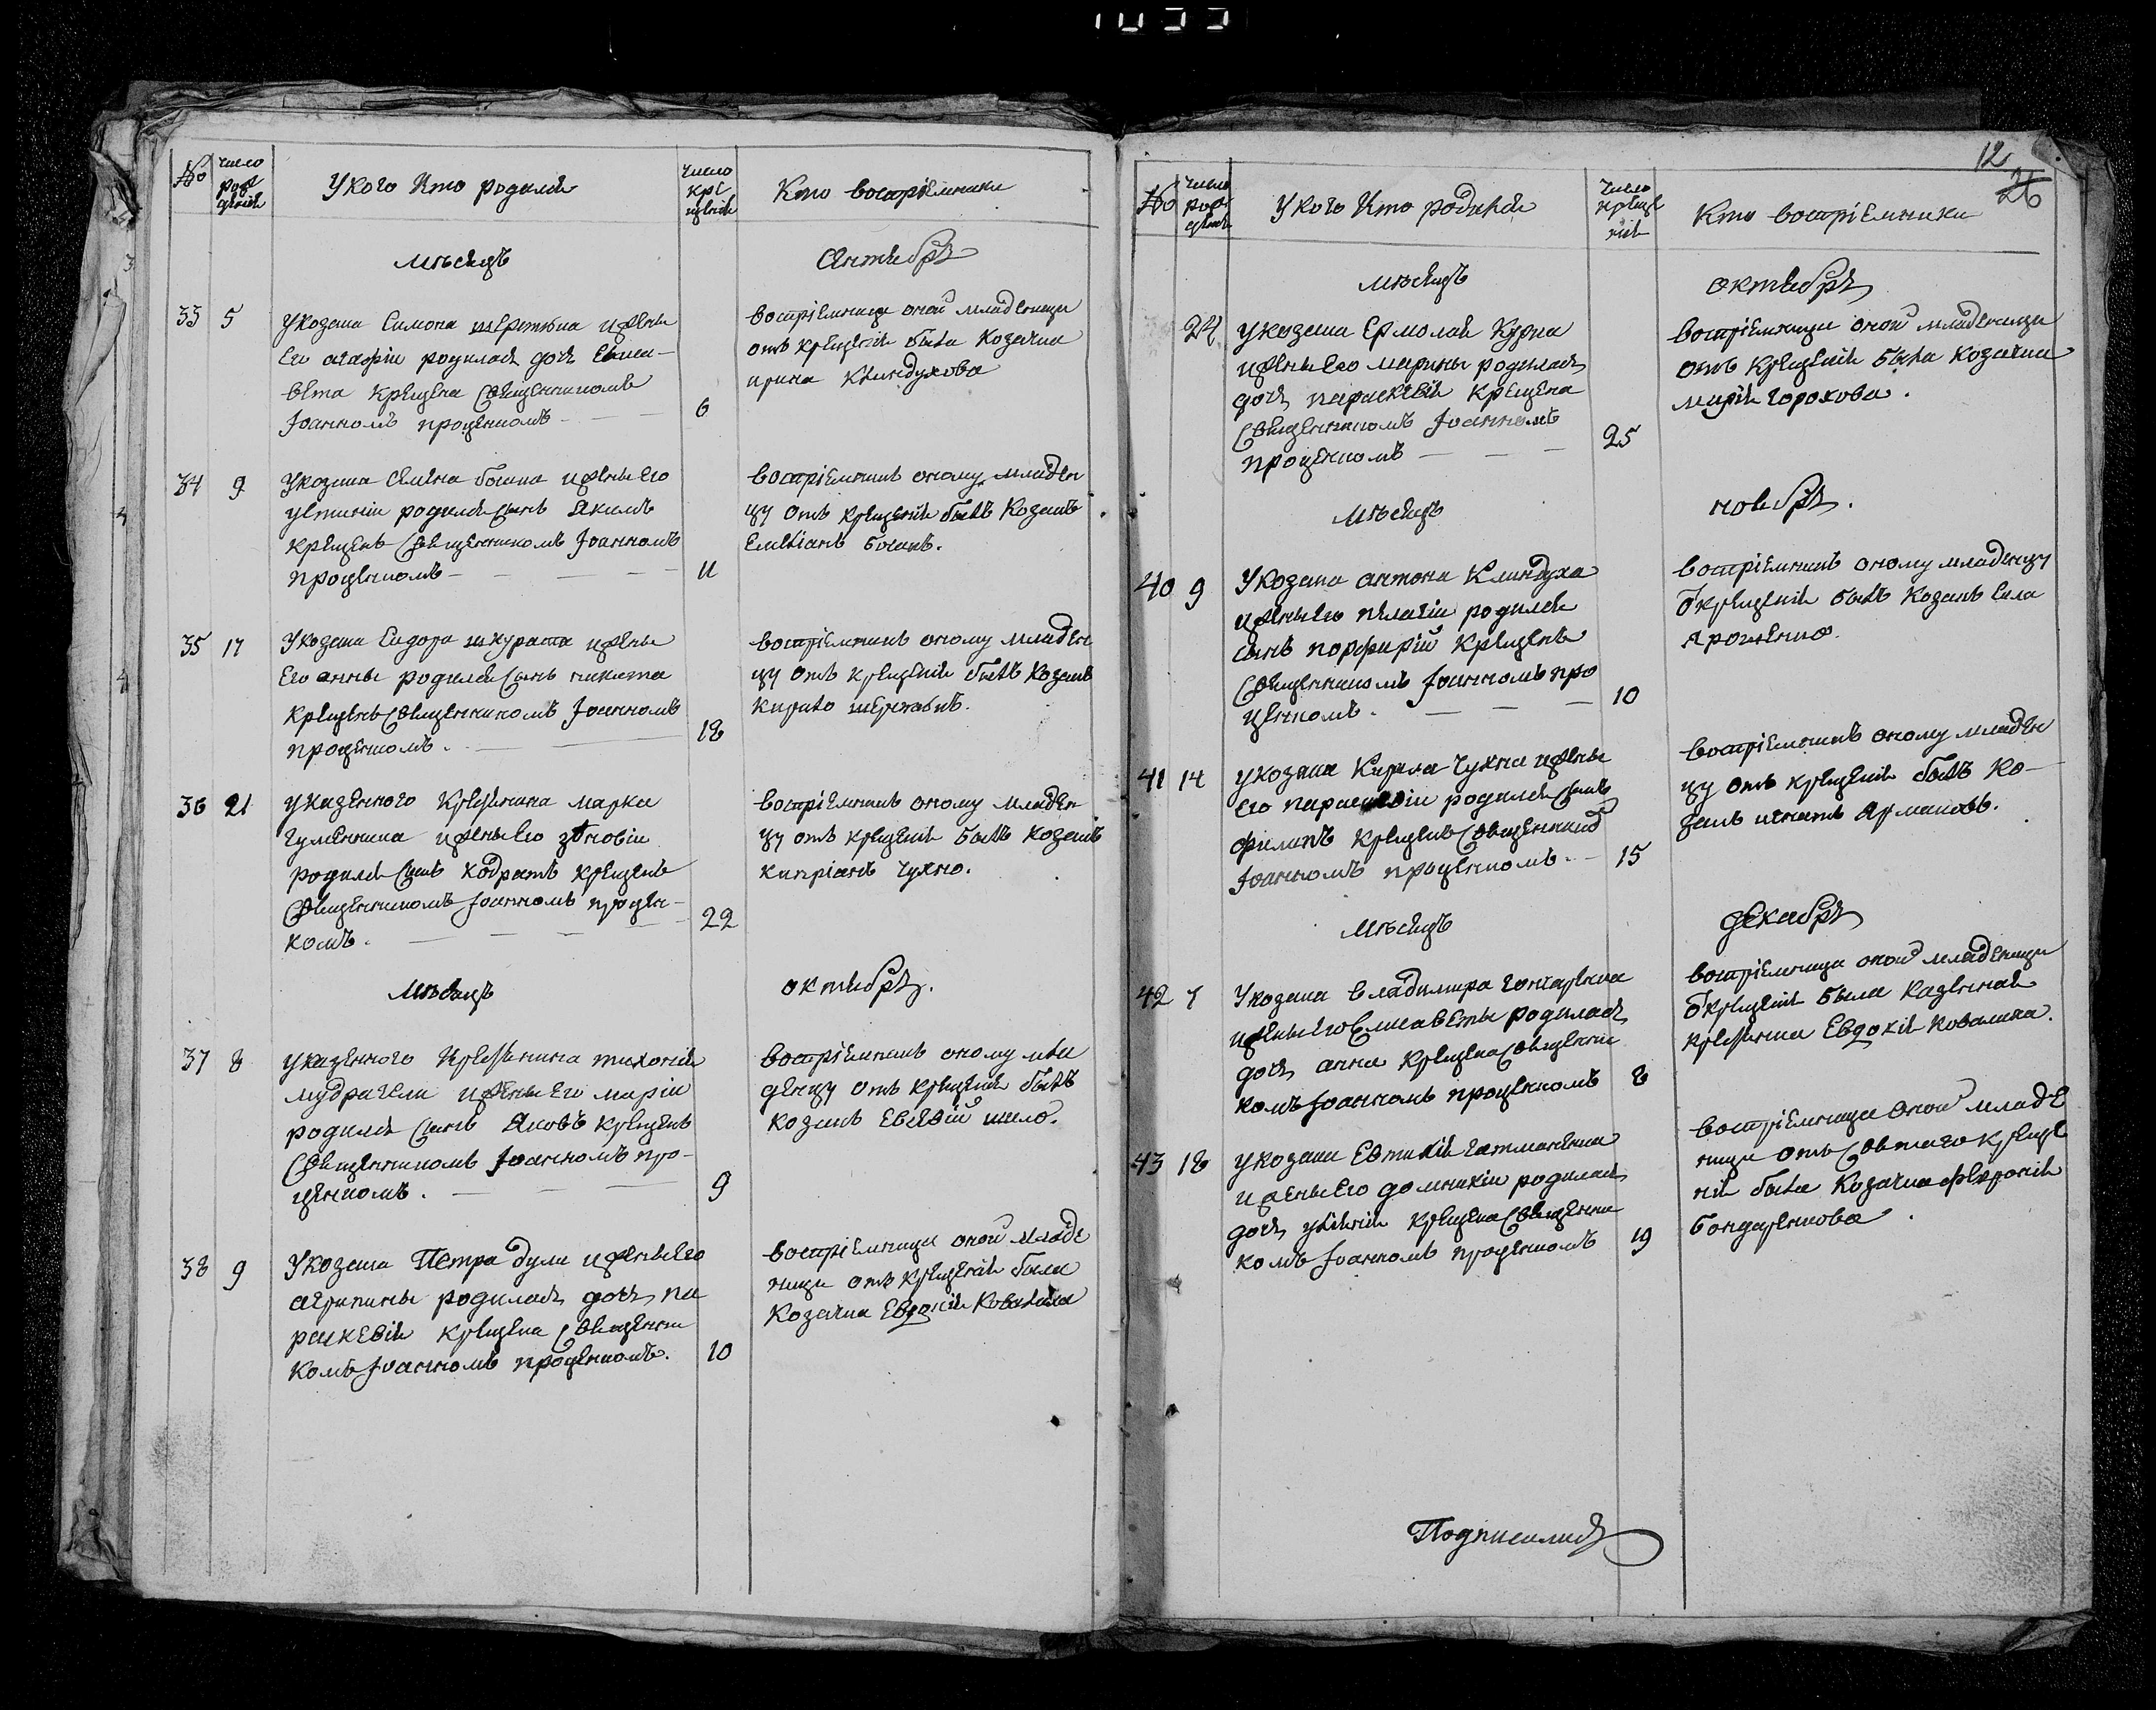 №
число рождения
У кого кто родился
число крещения
Кто восприемники
мѣсяцъ
Сентябрь
33 5
У козака Симона шерстюка и жены
его агафiи родилась дочь Елиса-
вета крещена Священникомъ
Iоанномъ проценкомъ
6
восприемница оной младеницы
отъ крещенiя была козачка
ирина Клиндухова
34 9
У козака Семена богана и жены его
Устинiи родился Сынъ Якимъ
крещенъ Священникомъ Iоанномъ
проценкомъ
11
восприемникъ оному младен
цу отъ крещенiя былъ козакъ
Емелiанъ боганъ.
35 17
У козака Сидора шкурата и жены
его анны родился Сынъ никита
крещенъ Священникомъ Iоанномъ
проценкомъ.
18
восприемникъ оному младен
цу отъ крещенiя былъ козакъ
кирило
36 21
У казенного крестьянина марка
гуменника и жены его зѣновiи
родился Сынъ Кодратъ крещенъ
Священникомъ Iоанномъ процен-
комъ.
22
восприемникъ оному младен
цу отъ крещенiя былъ козакъ
кипрiанъ Чухно.
мѣсяцъ
октябрь.
37 8
У казенного Крестьянина тихонiя
мудрагеля и жены его марiи
родился Сынъ Яковъ крещенъ
Священникомъ Iоанномъ про-
ценкомъ.
9
восприемникъ оному мла
денцу отъ крещенiя былъ
козакъ Евсевiй шило.
38 9
У козака Петра дули и жены его
агрипины родилась дочь па
раскевiя крещена Священни
комъ Iоанномъ проценкомъ.
10
восприемница оной младе
ницы отъ крещенiя была
козачка Евдокiя
12
26
№
число рождения
У кого кто родился
число крещения
Кто восприемники
мѣсяцъ
октябрь
24
У козака Ермолая Курка
и жены его марины родилась
дочь параскевiя крещена
Священникомъ Iоанномъ
проценкомъ
25
восприемница оной младеницы
отъ крещенiя была козачка
марiя горохова.
мѣсяцъ
ноябрь.
40 9
У козака антона Клиндуха
и жены его пелагiи родился
сынъ порфирiй крещенъ
Священникомъ Iоанномъ про
ценкомъ.
10
восприемникъ оному младенцу
ѿ крещенiя былъ козакъ Сила
Ярошенко
41 14
У козака Кирила Чухна и жены
его параскевiи родился Сынъ
филипъ крещенъ Священником
Iоанномъ проценкомъ.
15
восприемникъ оному младен
цу отъ крещенiя былъ ко-
закъ игнатъ Ярмаковъ.
мѣсяцъ
декабрь
42 7
У козака Владимира гончаренка
и жены его Елисаветы родилась
дочь анна крещена Священни
комъ Iоанномъ проценкомъ
8
восприемница оной младеницы
ѿ крещенiя была казенная
крестьянка Евдокiя Ковалика.
43 18
У козака Евтихiя гатманенка
и жены его домникiи родилась
дочь улiянiя крещена Священни
комъ Iоанномъ проценкомъ
19
восприемница оной младе
ницы отъ Святаго креще
нiя была козачка февронiя
бондаренкова.
Подписались